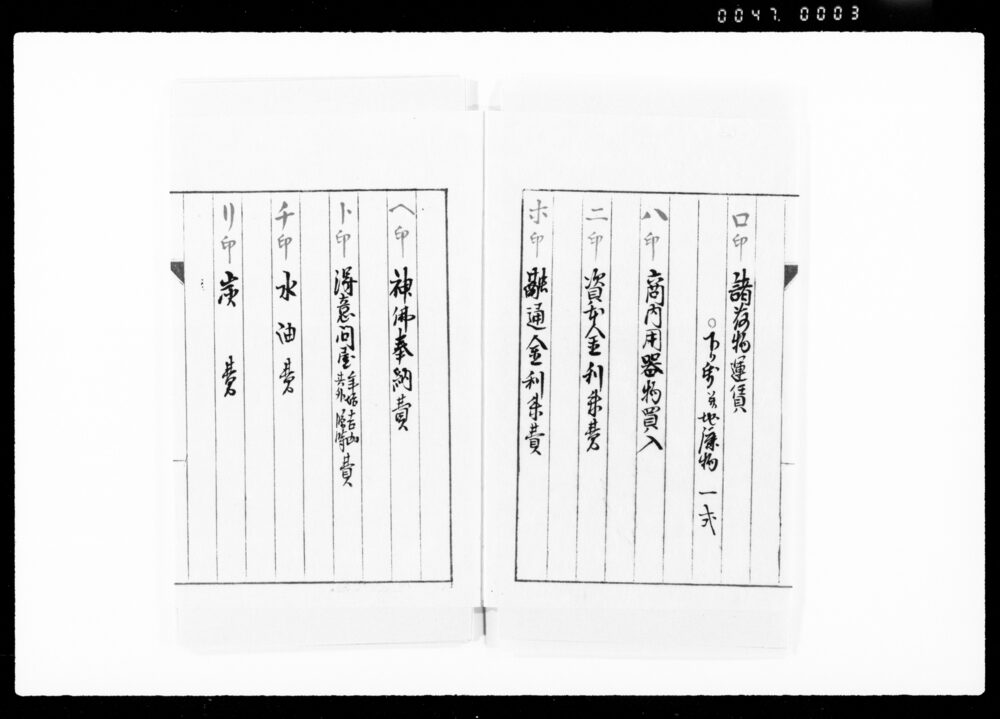 0047. 0003
ロ印 諸荷物運賃
○下り
地廻物 一式
ハ印 商内用器物買入
ニ印 資本金利朱費
ホ印 融通金利朱費
ヘ印 神佛奉納費
ト印 得意問屋 吉凶 共外 費
チ印 水油費
リ印 炭費